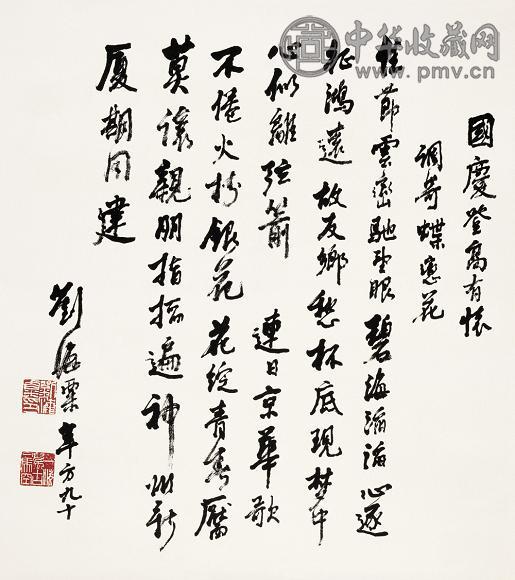 中华收藏网
www.pmv.cn
國慶登高有懷
調寄蝶戀花
佳節雲巒馳望眼 碧海滔滔心逐
征鴻遠 故友鄉愁杯底現 夢中
心似離弦箭 連日京華歌
不倦火樹銀花 花綻青春靨
莫讓親朋指摘遍 神州新
廈期同建
劉海粟年方九十